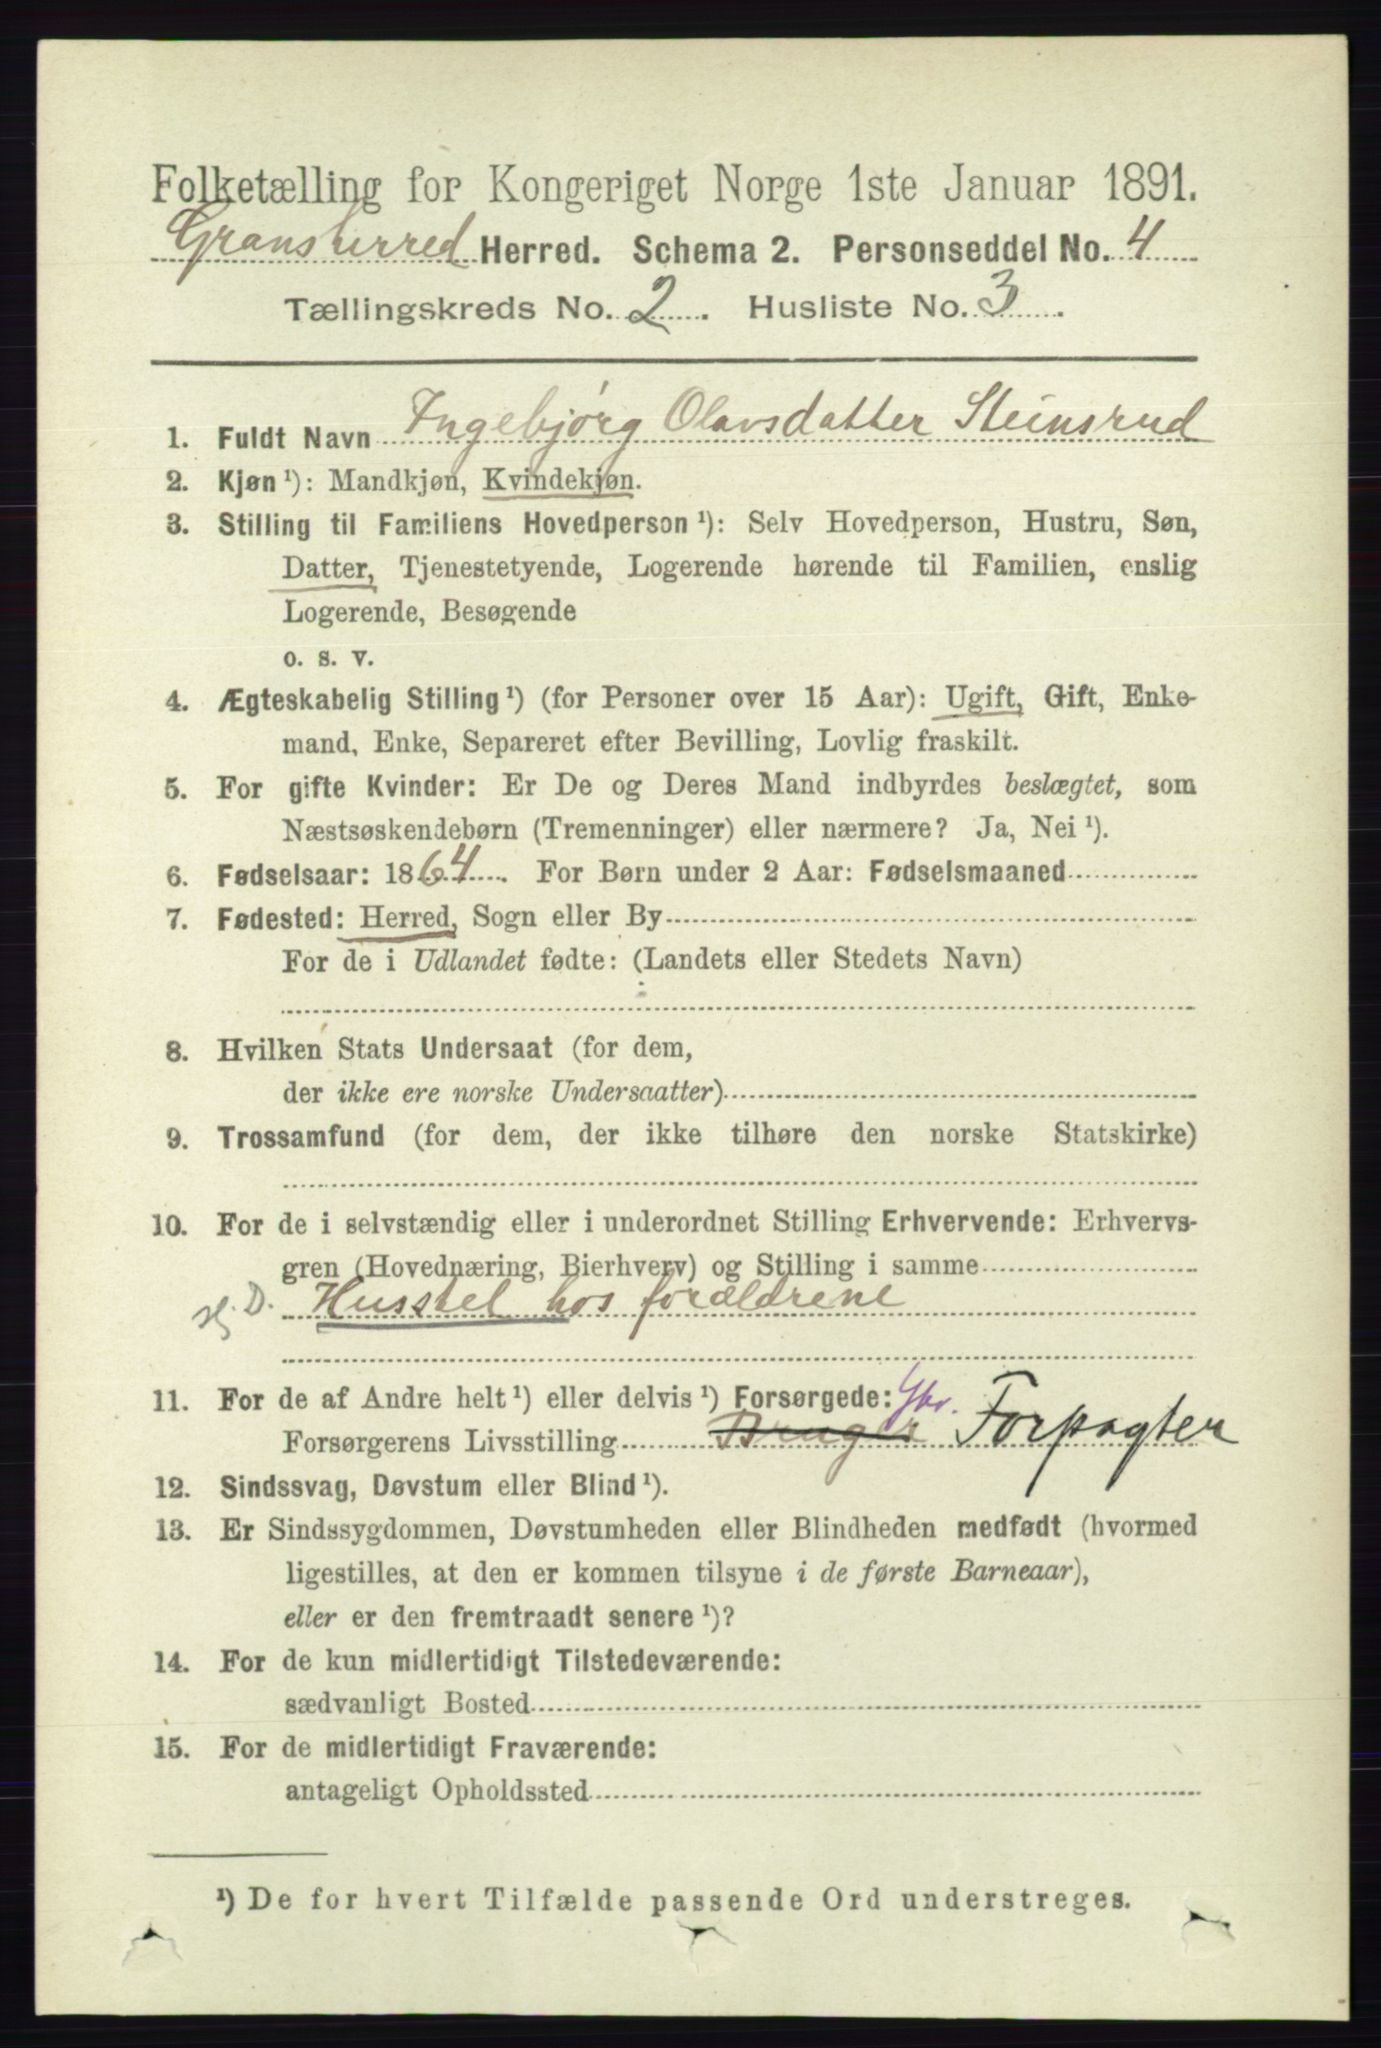 Folketælling for Kongeriget Norge 1ste Januar 1891.
Gransherred Herred. Schema 2. Personseddel No. 4
Tællingskreds No. 2. Husliste No. 3.
1. Fuldt Navn Ingebjørg Olavsdatter Steinsrud
2. Kjøn ¹): Mandkjøn, Kvindekjøn.
3. Stilling til Familiens Hovedperson ¹): Selv Hovedperson, Hustru, Søn,
Datter, Tjenestetyende, Logerende hørende til Familien, enslig
Logerende, Besøgende
o. s. v.
4. Ægteskabelig Stilling ¹) (for Personer over 15 Aar): Ugift, Gift, Enke-
mand, Enke, Separeret efter Bevilling, Lovlig fraskilt.
5. For gifte Kvinder: Er De og Deres Mand indbyrdes beslægtet, som
Næstsøskendebørn (Tremenninger) eller nærmere? Ja, Nei ¹).
6. Fødselsaar: 1864. For Børn under 2 Aar: Fødselsmaaned
7. Fødested: Herred, Sogn eller By
For de i Udlandet fødte: (Landets eller Stedets Navn)
8. Hvilken Stats Undersaat (for dem,
der ikke ere norske Undersaatter)
9. Trossamfund (for dem, der ikke tilhøre den norske Statskirke)
10. For de i selvstændig eller i underordnet Stilling Erhvervende: Erhvervs-
gren (Hovednæring, Bierhverv) og Stilling i samme
hj. D. Husstel hos forældrene
11. For de af Andre helt ¹) eller delvis ¹) Forsørgede: Gbr.
Forsørgerens Livsstilling Bruger Forpagter
12. Sindssvag, Døvstum eller Blind ¹).
13. Er Sindssygdommen, Døvstumheden eller Blindheden medfødt (hvormed
ligestilles, at den er kommen tilsyne i de første Barneaar),
eller er den fremtraadt senere ¹)?
14. For de kun midlertidigt Tilstedeværende:
sædvanligt Bosted
15. For de midlertidigt Fraværende:
antageligt Opholdssted
¹) De for hvert Tilfælde passende Ord understreges.